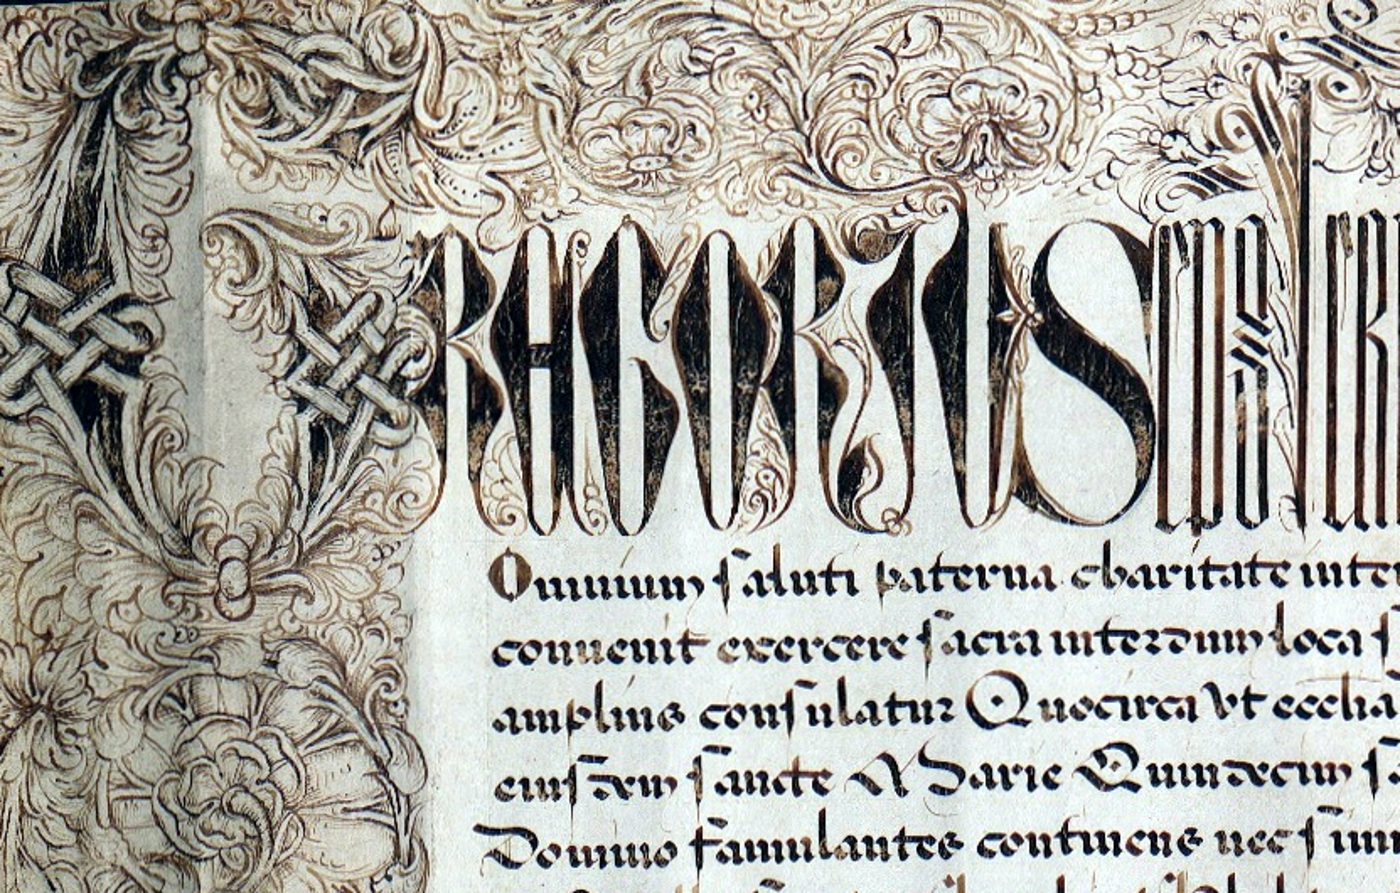 GREGORIUS
Omnium saluti paterna charitate inten
conuenit exercere sacra interdum loca s
amplius consulatur Quocirca vt ecclia
eiusdem sancte Marie Quindecim sa
Domino famulantes continens nec sim